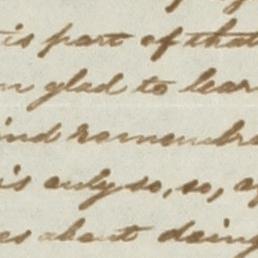 is part of that
glad to lear
ind remembra
is only so, so, a
es about doing